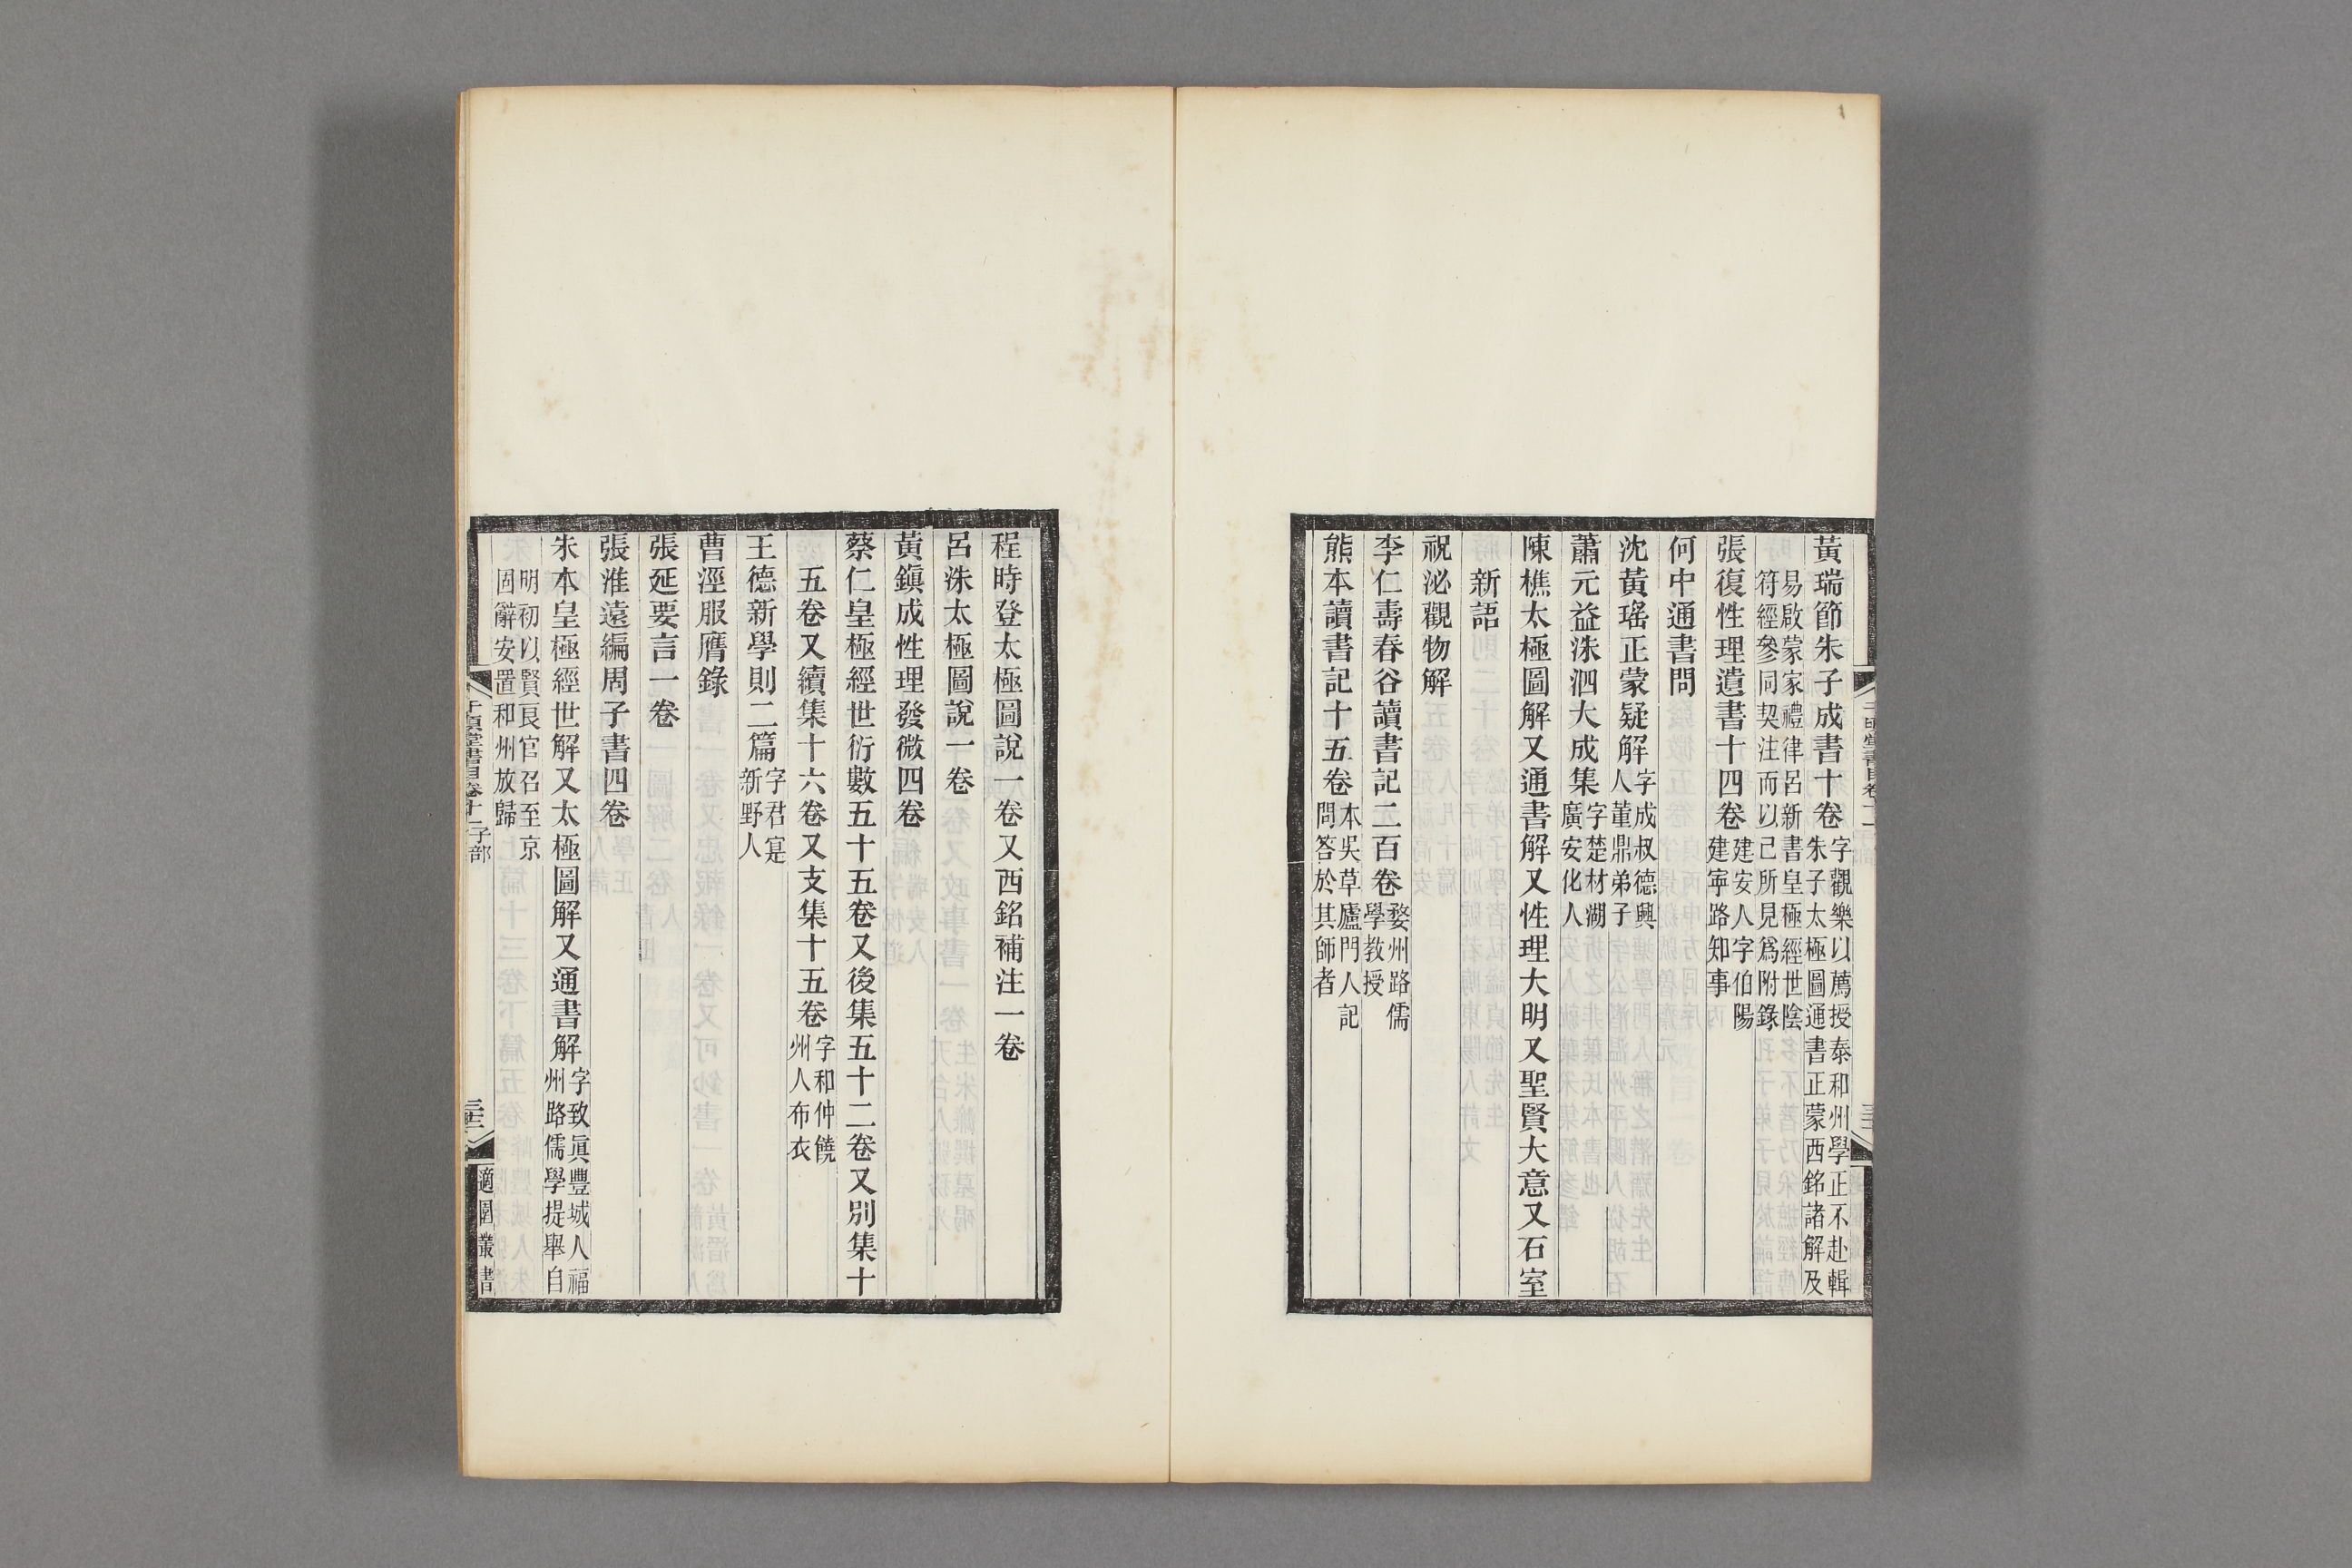 黃瑞節朱子成書十卷字觀樂以薦授泰和州學正不赴輯朱子太極圖通書正蒙西銘諸解及
易啟蒙家禮律呂新書皇極經世陰符經參同契注而以己所見爲附錄
張復性理遺書十四卷建安人字伯陽建寧路知事
何中通書問
沈黃瑤正蒙疑解字成叔德興人董鼎弟子
蕭元益洙泗大成集字楚材湖廣安化人
陳樵太極圖解又通書解又性理大明又聖賢大意又石室
新語
祝泌觀物解
李仁壽春谷讀書記二百卷婺州路儒學教授
熊本讀書記十五卷本吳草廬門人記問答於其師者
程時登太極圖說一卷又西銘補注一卷
呂洙太極圖說一卷
黃鎮成性理發微四卷
蔡仁皇極經世衍數五十五卷又後集五十二卷又別集十
五卷又續集十六卷又支集十五卷字和仲饒州人布衣
王德新學則二篇字君寔新野人
曹涇服膺錄
張延要言一卷
張淮遠編周子書四卷
朱本皇極經世解又太極圖解又通書解字致眞豐城人福州路儒學提舉自
明初以賢良官召至京固辭安置和州放歸
千頃堂書目卷十一子部
適園叢書